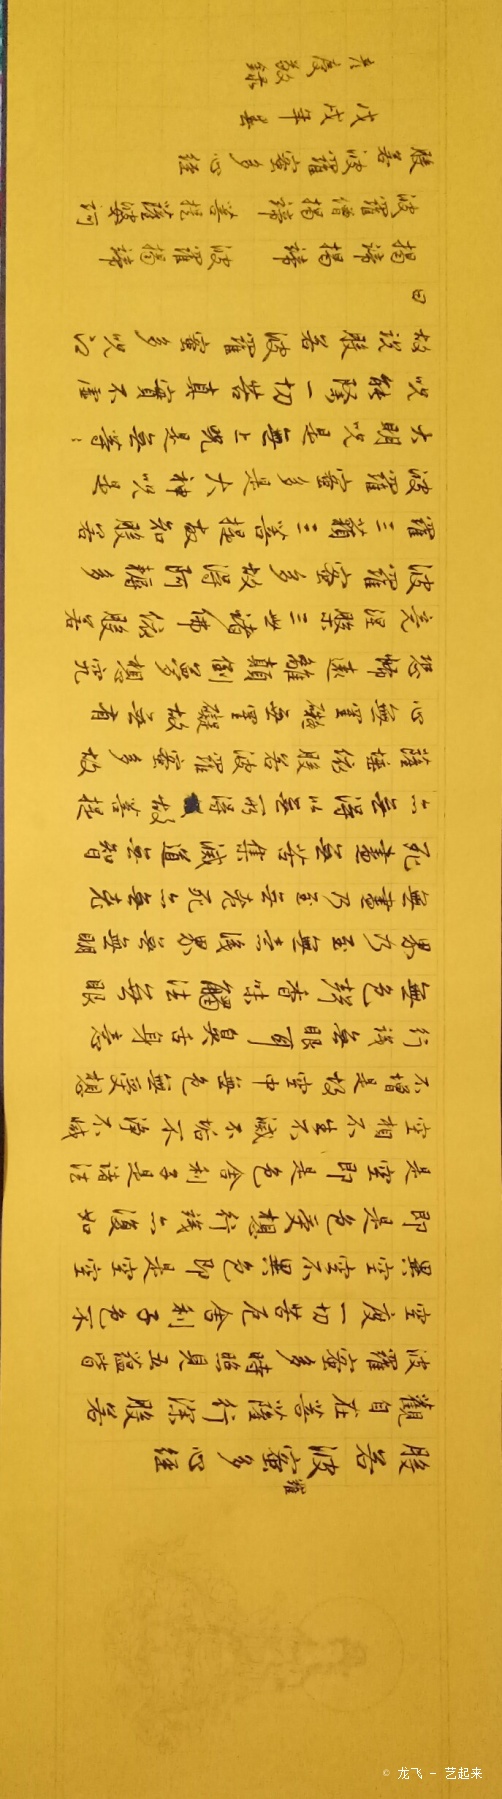 般若波羅蜜多心經
觀自在菩薩行深般若
波羅蜜多時照見五蘊皆
空度一切苦厄舍利子色不
異空空不異色即是空空
即是色受想行識亦復如
是空即是色舍利子是諸法
空相不生不滅不垢不淨不滅
不增是故空中無色無受想
行識無眼耳鼻舌身意
無色聲香味觸法無眼
界乃至無意識界無無明
無盡乃至無老死亦無老
死盡無苦集滅道無智
亦無得以無所得故菩提
薩埵依般若波羅蜜多故
心無罣礙無罣礙故無有
恐怖遠離顛倒夢想究
竟涅槃三世諸佛依般若
波羅蜜多故得阿耨多
羅三藐三菩提故知般若
波羅蜜多是大神咒是
大明咒是無上咒是無等:
咒能除一切苦真實不虛
故說般若波羅蜜多咒
曰
揭諦 揭諦 波羅揭諦
波羅僧揭諦 菩提薩婆訶
般若波羅蜜多心經
戊戌年
度敬錄
© 龙飞 – 艺起来